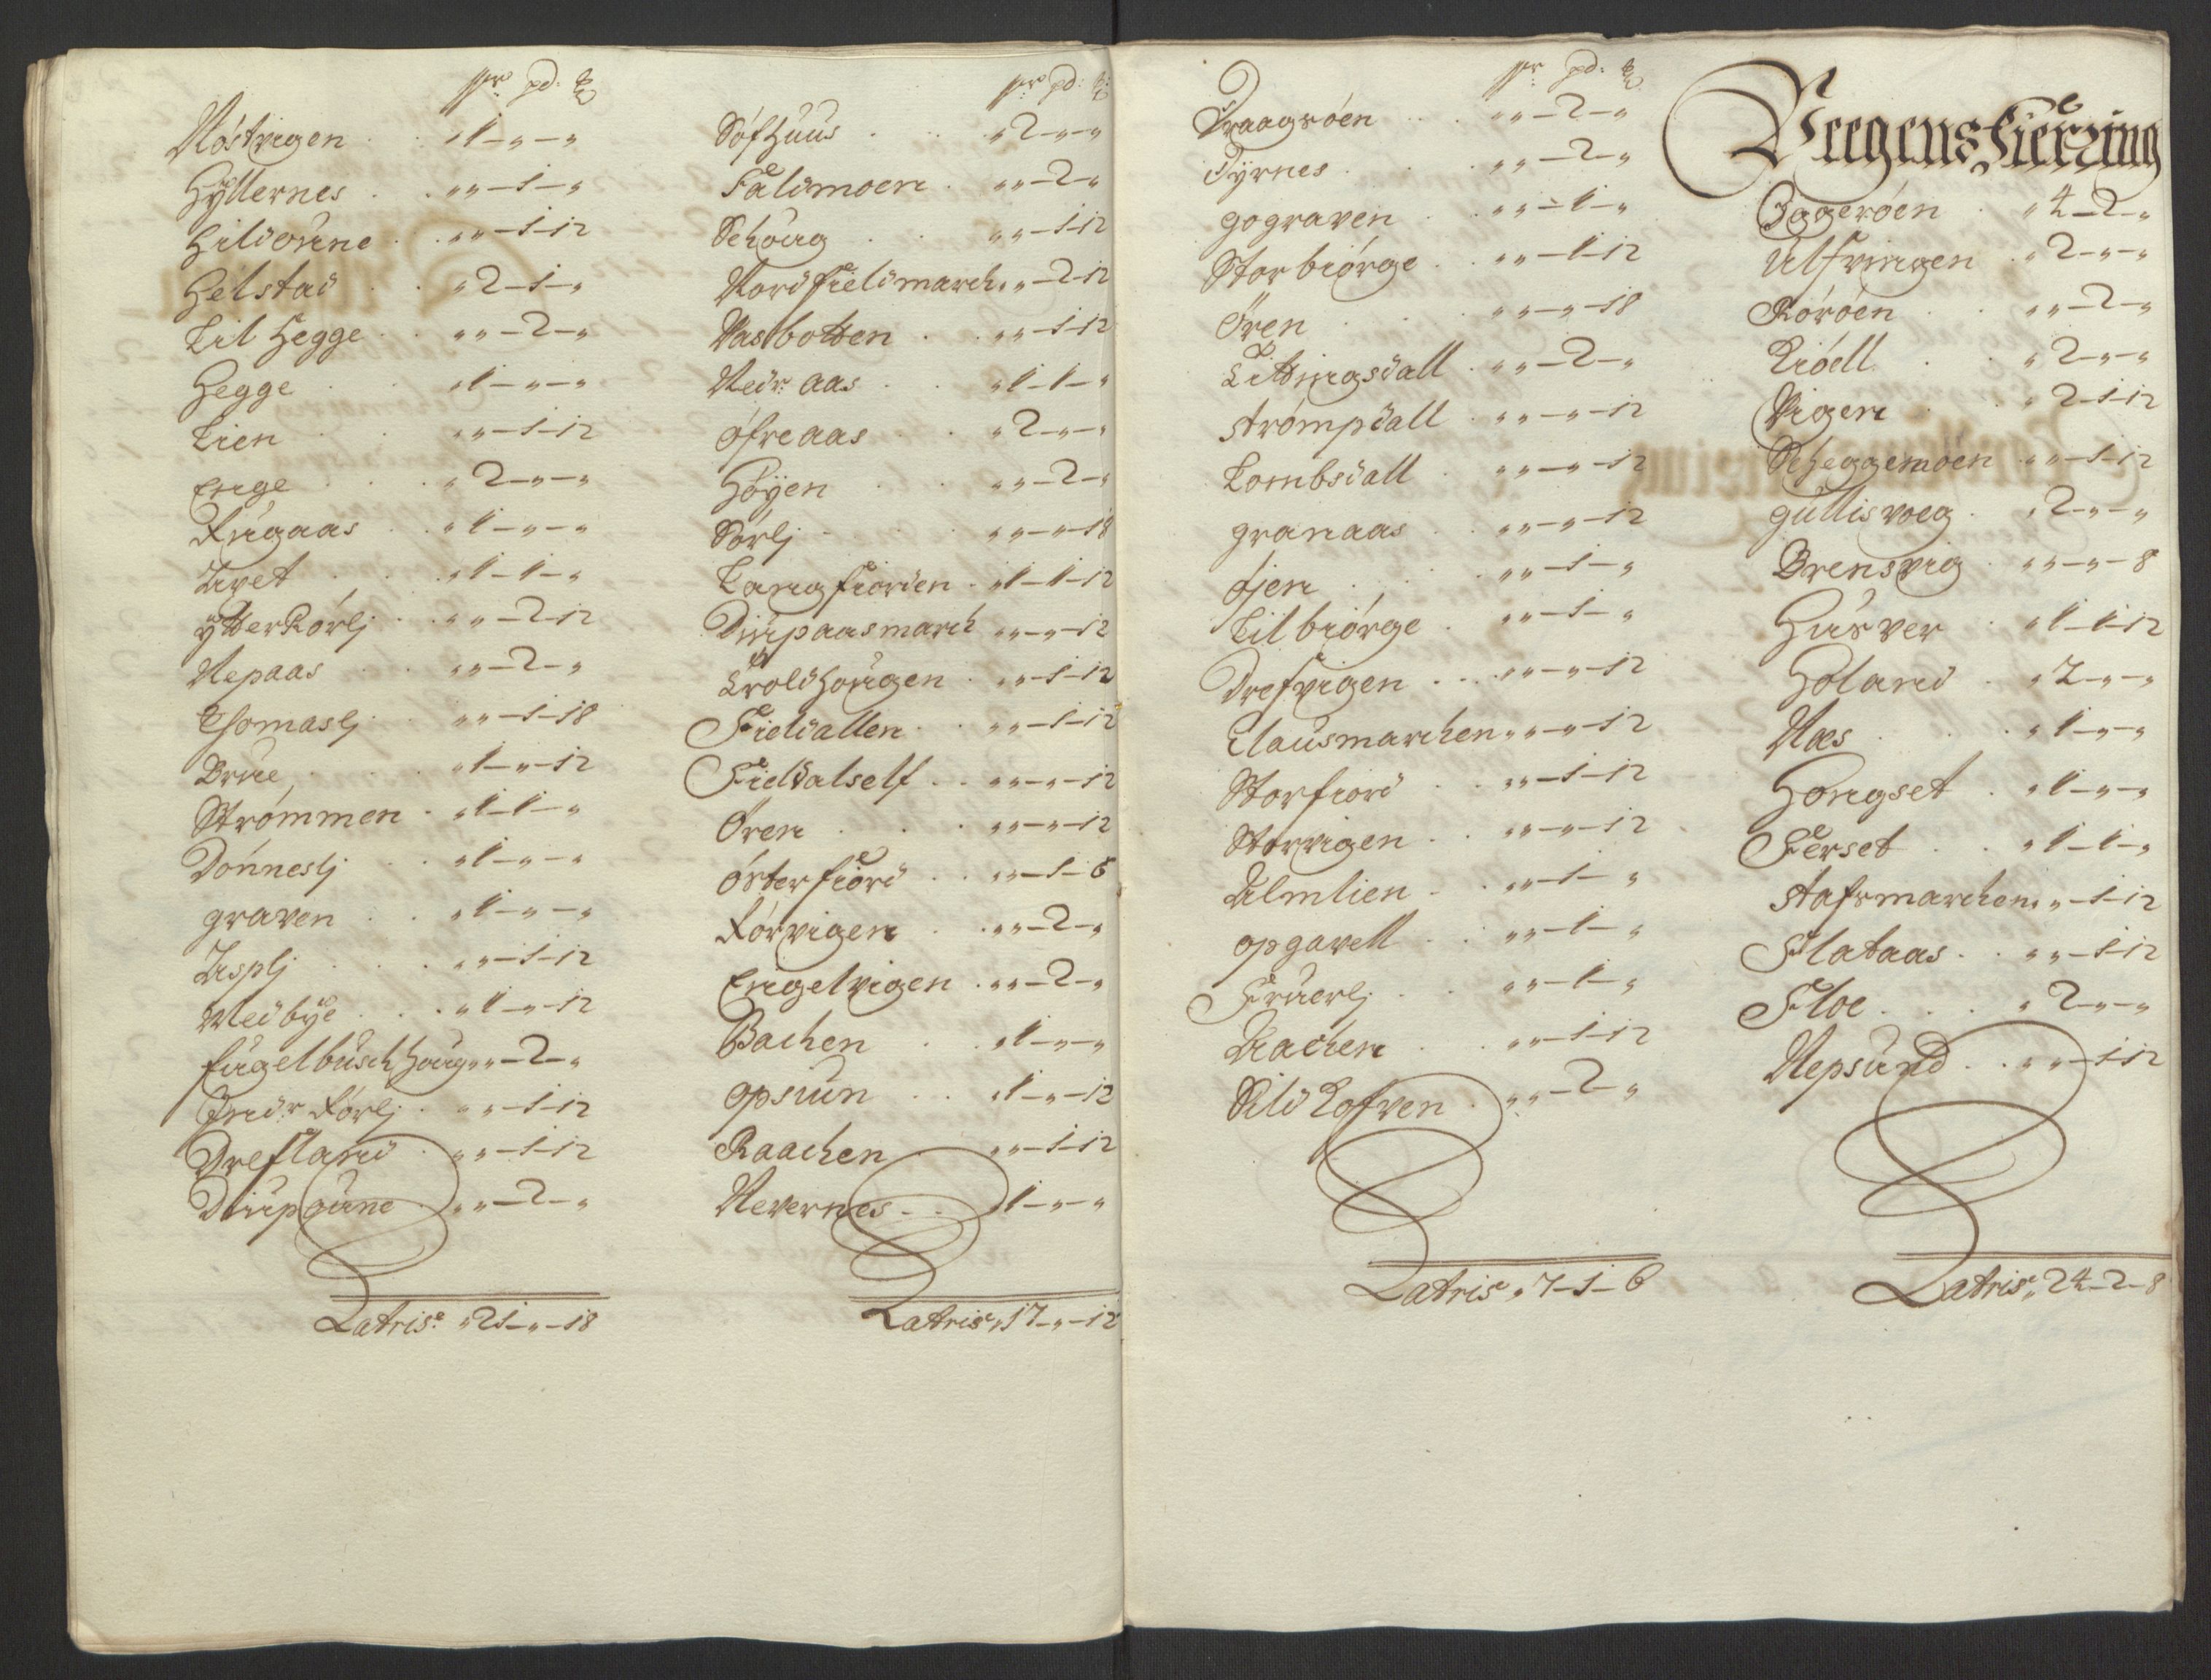 spr pd: ℔
Nóstvigen . . „1–„–„
Hÿllernes . . „„–1–„
Hildoune . . „„–1–12
Helstad . . „2–1–„
Lil Hegge . . „„–2–„
Hegge . . „1–„–„
Lien . . „„–1–12
Enge . . „2–„–„
Ringaas . . „1–„–„
Uvet . . „1–1–„
ÿtter Rórlj . . „„–2–12
Nepaas . . „„–2–„
Thomaslj . „„–1–18
Brue . . „1–„–12
Strómmen . „1–1–„
Dónneslj . „1–„–„
graven . . „1–„–„
Usplj . . „„–1–12
Medbÿe . . „1–„–12
fugelbusch houg „„–2–„
Indr Rórlj . „„–1–12
Drefland . „„–1–12
Diupoune . „„–2–„
Latris: „21–„–18
spr pd: ℔
Sófhuus . . „2–„–„
Faldmoen . „„–2–„
Schoug . . „„–1–12
Nordfieldmarch „„–2–12
Vasbotten . „„–1–12
Nedr aas . . „1–1–„
ófre aas . . „2–„–„
Høÿen . . „„–2–„
Sórlj . . „„–„–18
Langfiorden . „1–1–12
Diupaasmarch „„–„–12
Troldhougen . „„–1–12
Fieldallen . „„–1–12
Fieldalself . . „„–„–12
Óren . . „„–„–12
ósterfiord . . „„–1–6
Rórvigen . . „„–2–„
Engelvigen . „„–2–„
Bachen . . „1–„–„
opsiun . . „1–„–12
Raachen . „„–1–12
Nevernes . . „1–„–„
Latris: „17–„–12
spr pd: ℔
Kraagróen . . „„–2–„
Dÿrnes . . „„–2–„
gograven . „„–1–„
Storbiórge . „„–1–12
Óren . . „„–„–18
Littingsdall . „„–2–„
strómpdall . „„–„–12
Lombsdall . „„–„–12
granaas . „„–„–12
ójen . . „„–1–„
Lilbiórge . „„–1–„
Drefvigen . . „„–„–12
Clausmarchen „„–„–12
Storfiord . . „„–1–12
Storvigen . . „„–„–12
Almlien . . „„–1–„
opgavell . . „„–1–„
Fruerlj . . „„–1–„
Aachen . . „„–1–12
Sild Kofven . „„–2–„
Latris: „7–1–6
Veegens fierzing
Eggeróen . „4–2–„
Ulfvingen . „2–„–„
Róróen . . „„–2–„
Kióell . . „2–„–„
Vigen . . „2–1–12
Scheggemóen „„–1–12
gullisvoeg . „2–„–„
Brensvig . „„–„–8
Husver . „1–1–12
Holand . „2–„–„
Næs . . „1–„–„
Hongset . „1–„–„
Ferset . . „1–1–„
stafsmarchen „„–1–12
Flataas . . „„–1–12
Floe . . „2–„–„
Nepsund . . „„–1–12
Latris: „24–2–8